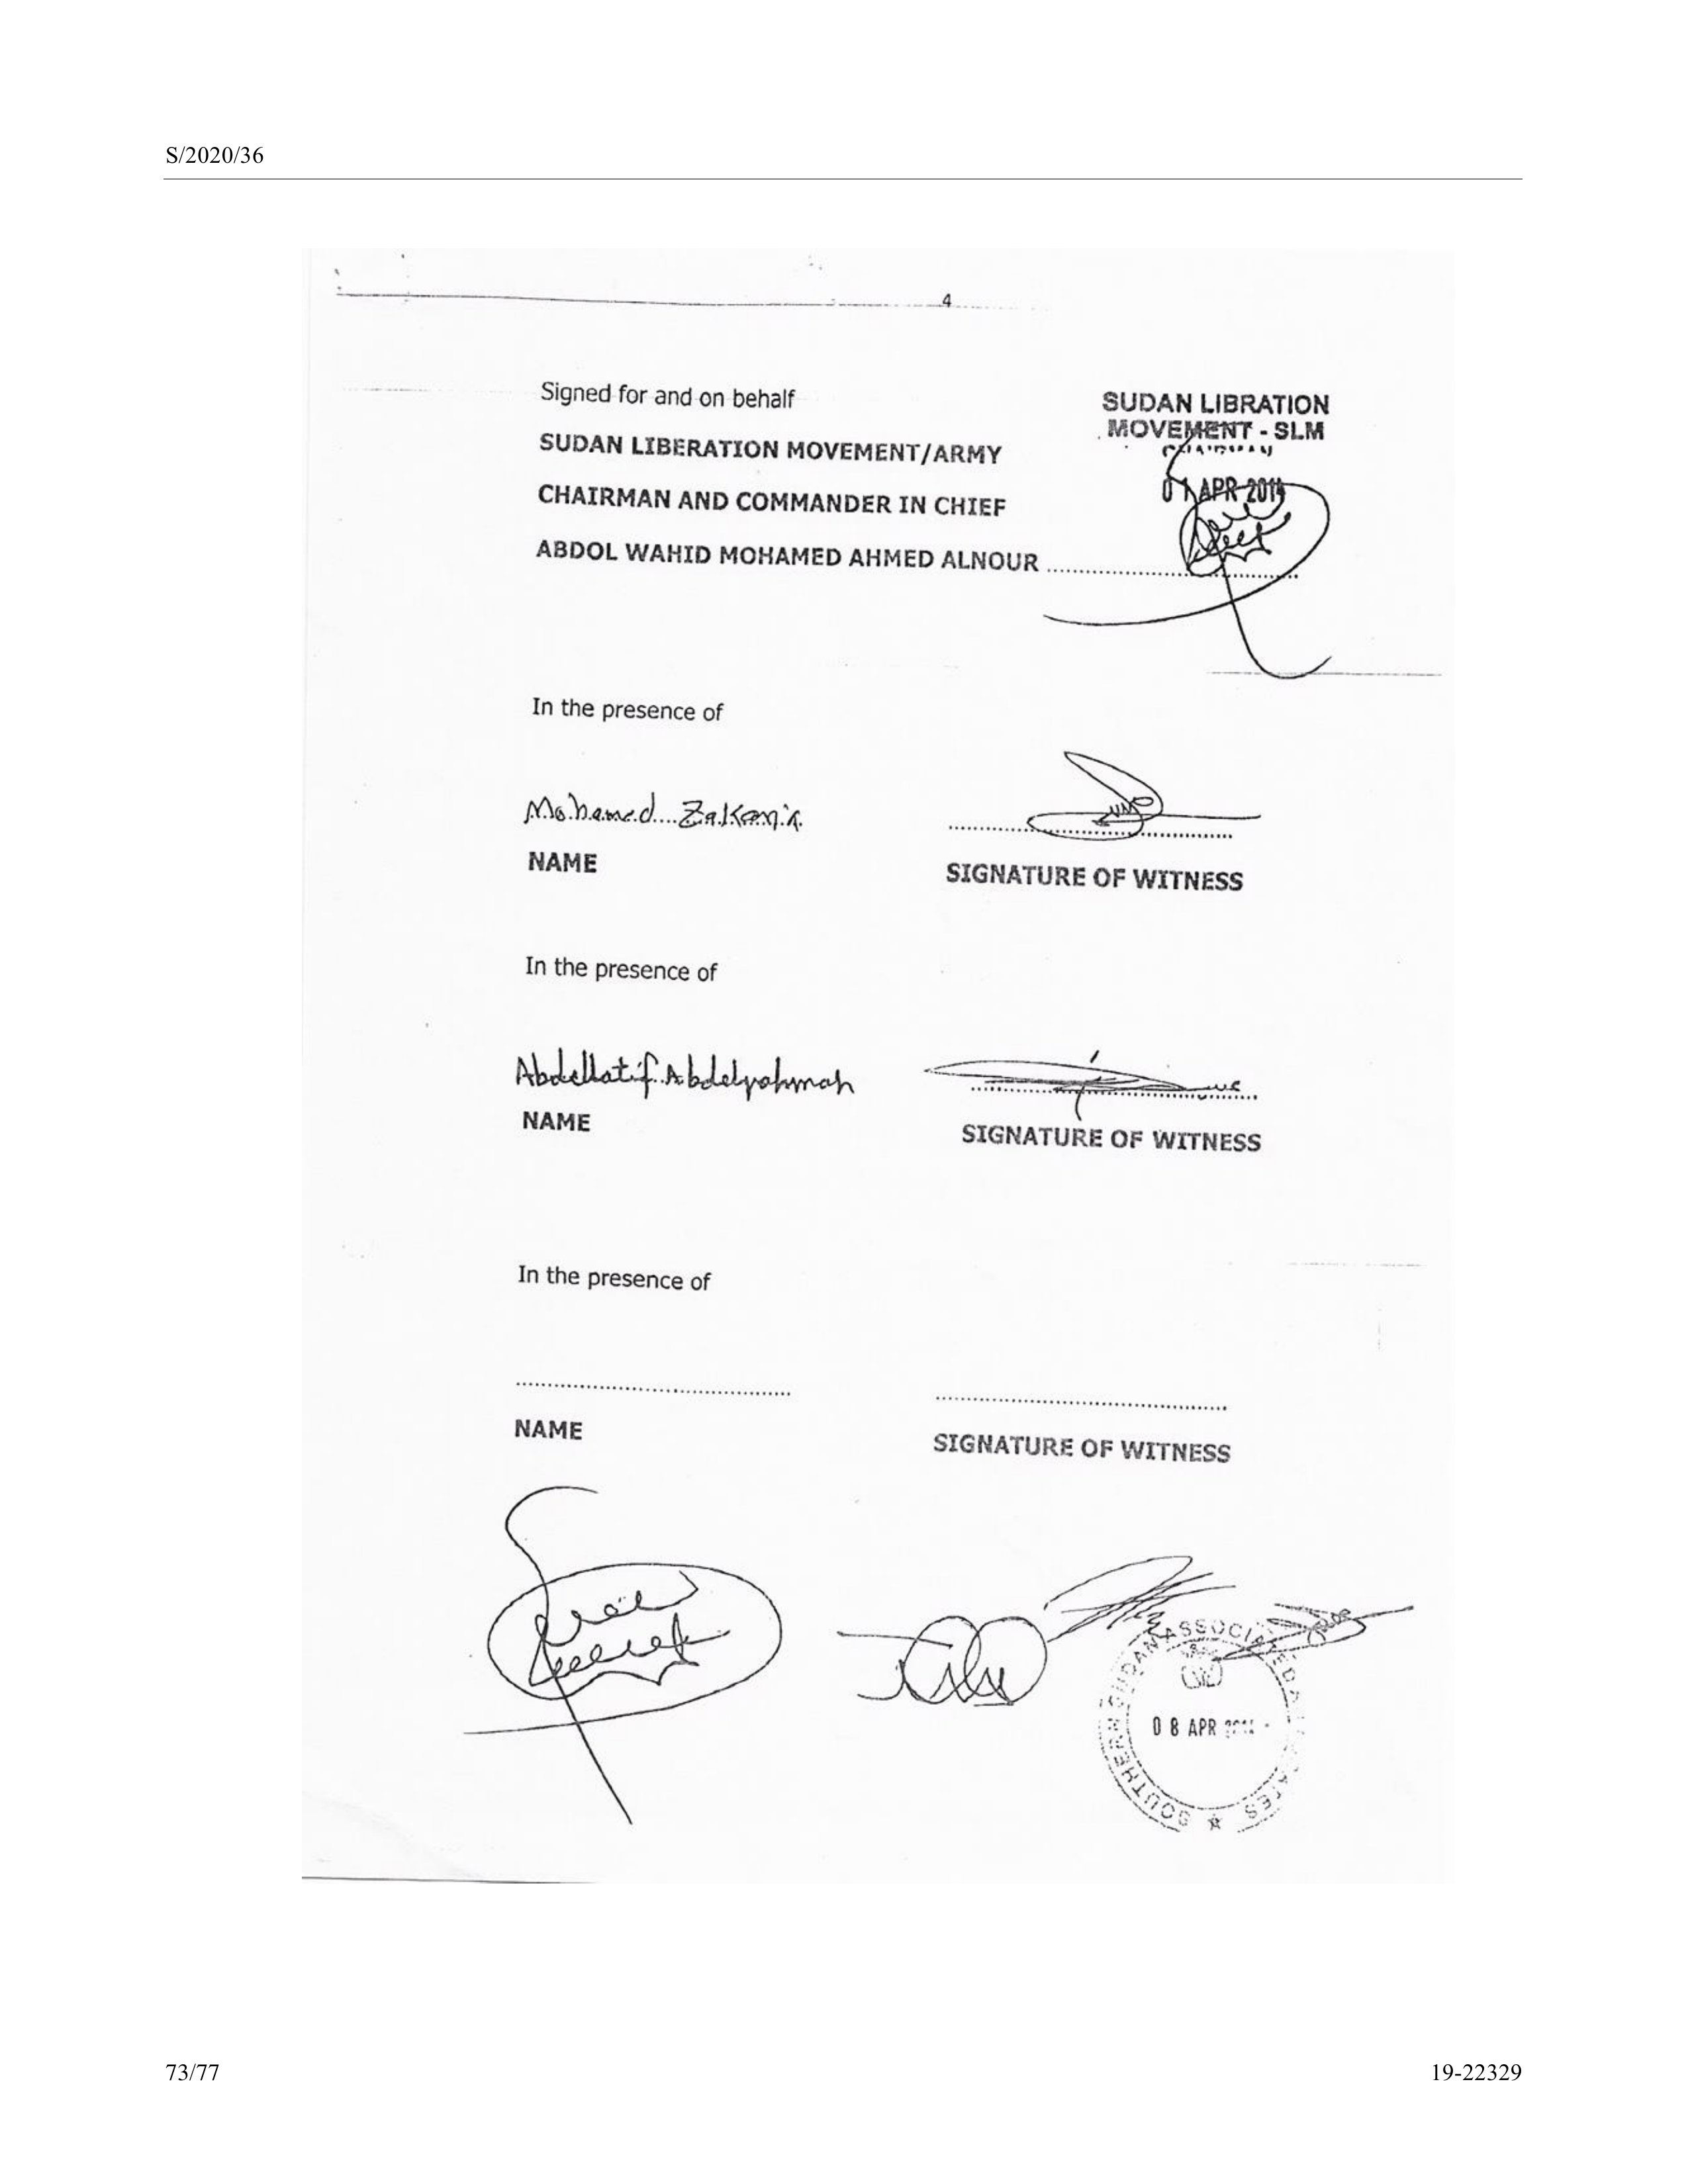 S/2020/36
4
Signed for and on behalf
SUDAN LIBERATION MOVEMENT/ARMY
CHAIRMAN AND COMMANDER IN CHIEF
ABDOL WAHID MOHAMED AHMED ALNOUR
SUDAN LIBRATION
MOVEMENT - SLM
CHAIRMAN
01 APR 2014
In the presence of
Mohamed Zakaria
NAME
SIGNATURE OF WITNESS
In the presence of
Abdellatif Abdelrahman
NAME
SIGNATURE OF WITNESS
In the presence of
NAME
SIGNATURE OF WITNESS
SOUTHERN SUDAN ASSOCIATED
08 APR
73/77
19-22329